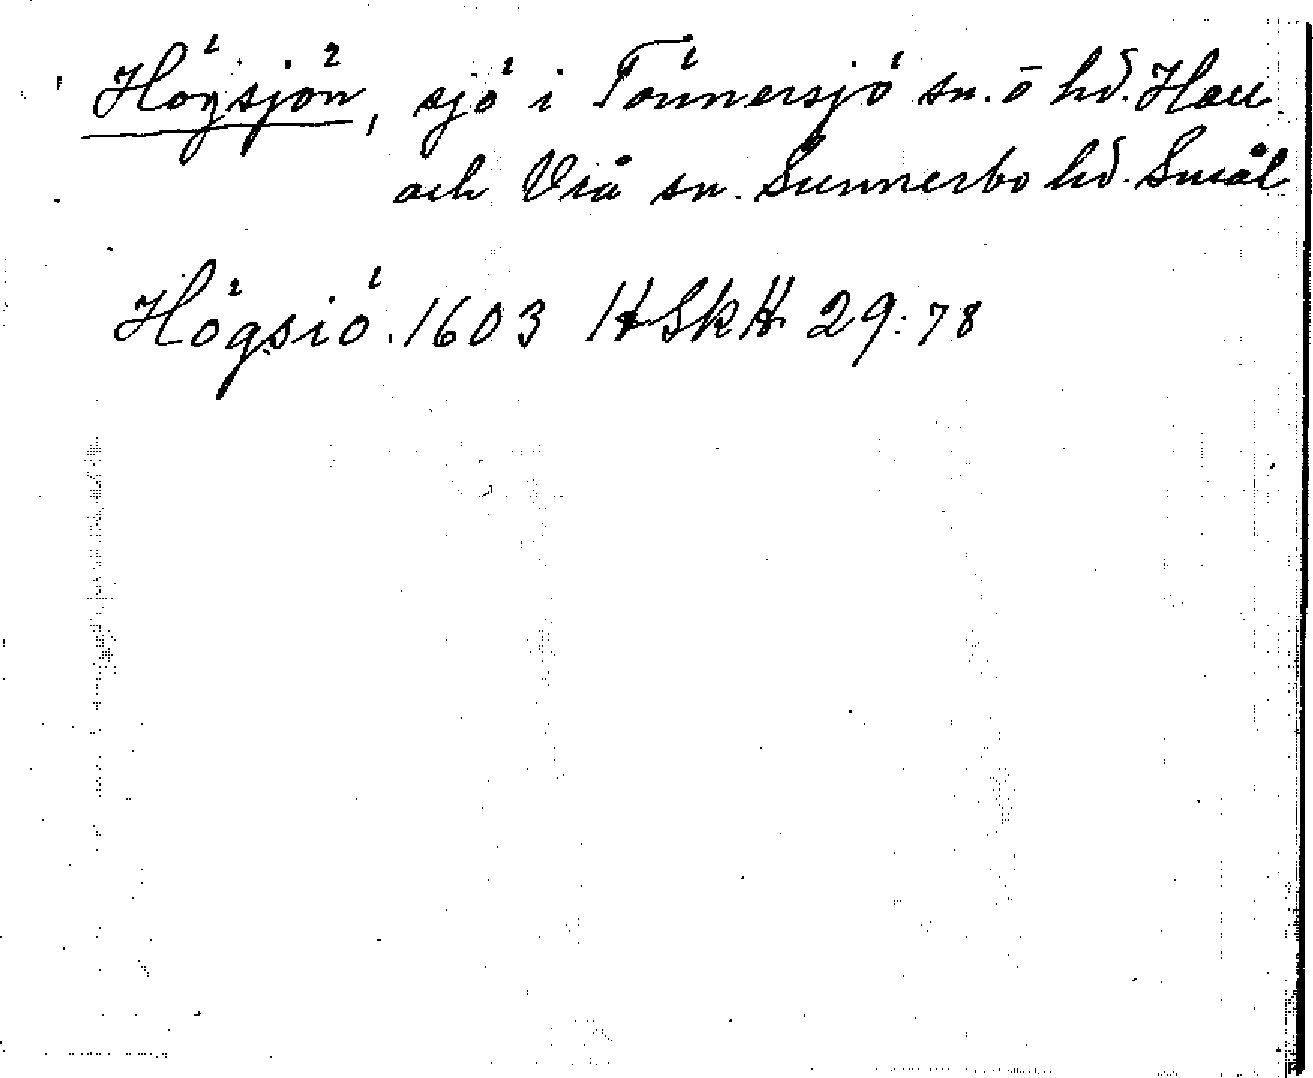 Högsjön, sjö i Tönnersjö sn. ö hd. Hall
och Vrå sn. Sunnerbo hd. Smål
Högsiö. 1603 HSkH 29:78